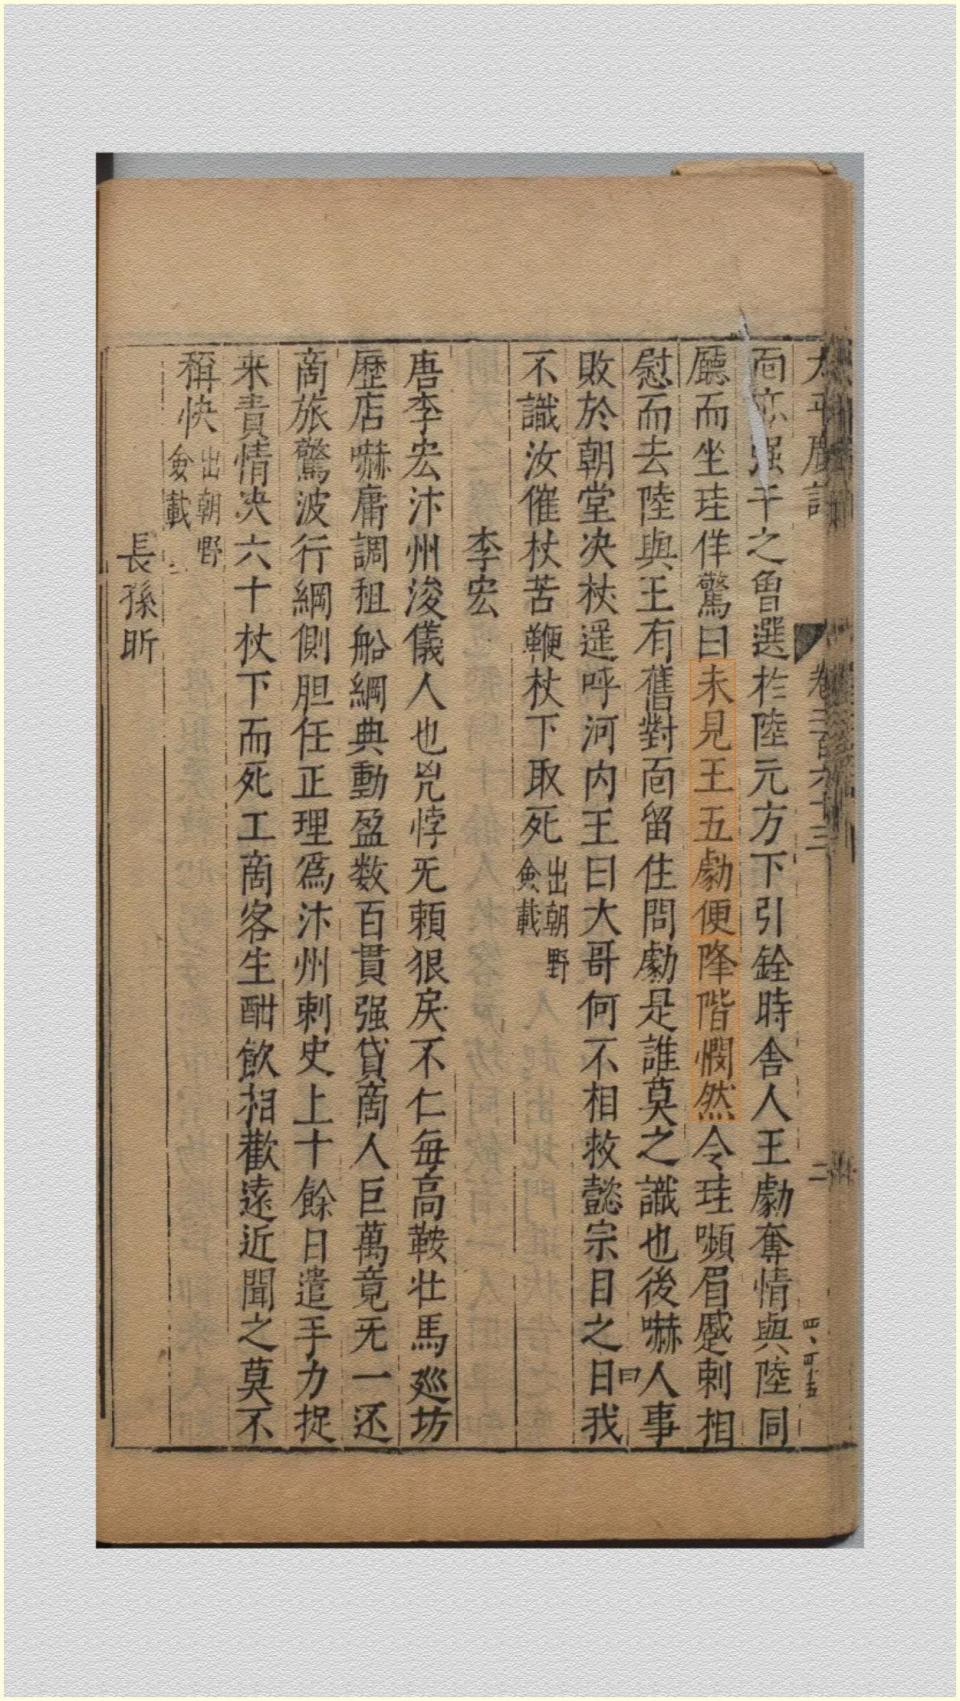 太平廣記 卷二百六十三 二
面恣强干之魯選於陸元方下引銓時舍人王勮奪情與陸同
廳而坐珪佯驚曰未見王五勮便降階憫然令珪嚬眉蹙刺相
慰而去陸與王有舊對面留住問勮是誰莫之識也後嚇人事
敗於朝堂决杖遥呼河内王曰大哥何不相救懿宗目之曰我
不識汝催杖苦鞭杖下取死出朝野僉載
李宏
唐李宏汴州浚儀人也兇悖无頼狠戾不仁毎高鞍壮馬廵坊
歴店嚇庸調租船綱典動盈数百貫强貸啇人巨萬竟无一还
啇旅驚波行綱側胆任正理爲汴州刺史上十餘日遣手力捉
来責情决六十杖下而死工啇客生酣飲相歡遠近聞之莫不
稱快出朝野僉載
長孫昕